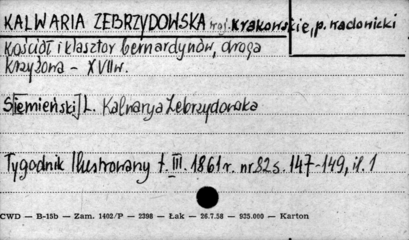 KALWARIA ZEBRZYDOWSKA woj. Krakowskie, p. wadowicki
Kościół i klasztor bernardynów, droga
krzyżowa - XVIIw.
S[iemieński] L. Kalwarya Zebrzydowska
Tygodnik Ilustrowany t. III. 1861 r. nr 82 s. 147-149, il. 1
CWD — B-15b — Zam. 1402/P — 2398 — Łak — 26.7.58 — 935.000 — Karton